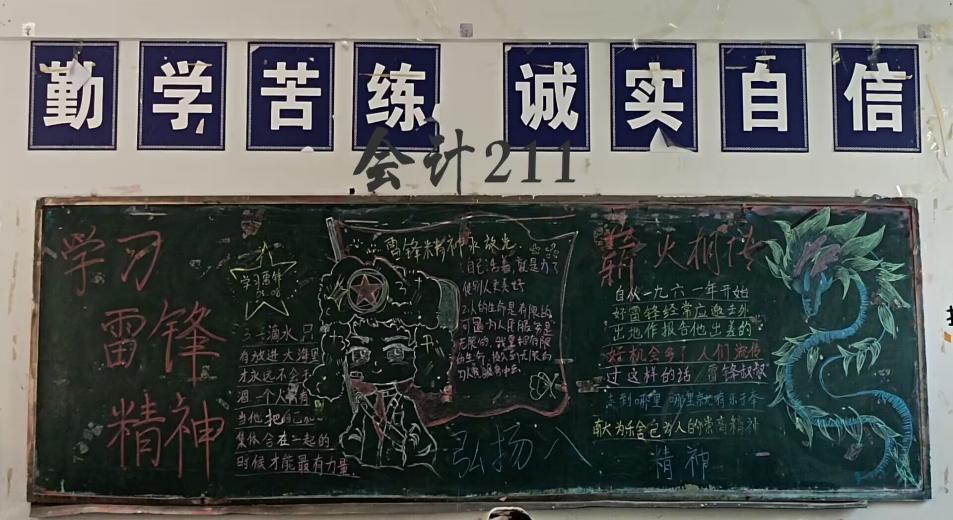 勤学苦练 诚实自信
会计211
学习
雷锋
精神
学习雷锋
一滴水只
有放进大海里
才永远不会干
涸一个人只有
当他把自己和
集体合在一起的
时候才能最有力量
雷锋精神永放光
自己活着,就是为了
使别人更美好
2.人的生命是有限的
可
为人民服务是
无限的,我要把有限
的生命,投入到无限的
为人民服务中去
弘扬
薪火相传
自从一九六一年开始
雷锋经常应邀去外
出地作报告他出差的
机会多了人们流传
过这样的话 雷锋叔叔
走到哪里 哪里
为人的崇高精神
精神